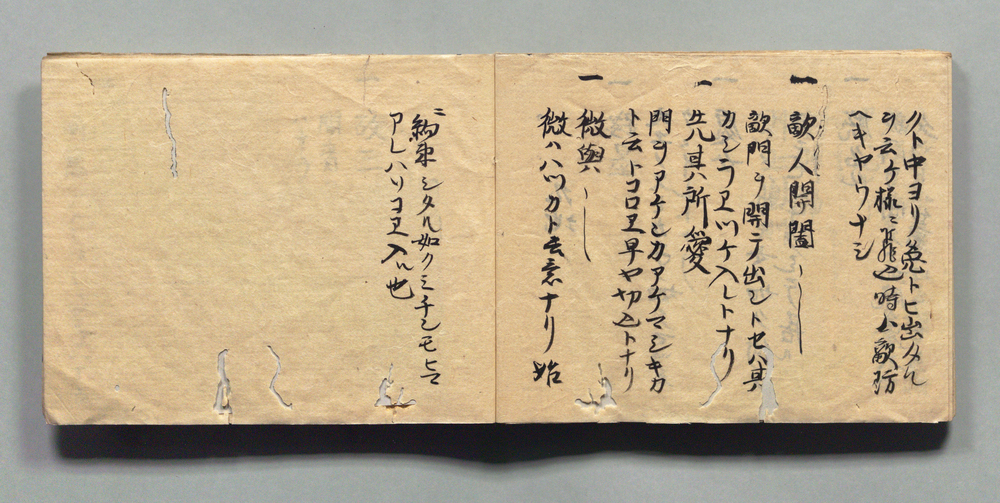 クト中ヨリ兔トヒ出タル
ヲ云ケ様ニ飛込時ハ敵防
ヘキヤウナシ
一 敵人開闔 ―
敵門ヲ開テ出ントセハ其
カシラヱツケ入レトナリ
一 先其所愛
門ヲアケンカアケマシキカ
ト云トコロヱ早ヤ切込トナリ
一 微與 ―
微ハハツカト云意ナリ始
ニ約束シタル如クミチンモヒマ
アレハソコヱ入ル也